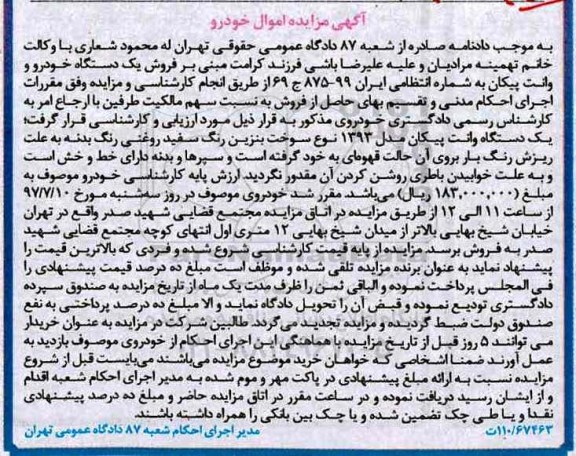 آگهی مزایده اموال خودرو
به موجب دادنامه صادره از شعبه ۸۷ دادگاه عمومی حقوقی تهران له محمود شعاری با وکالت
خانم تهمینه مرادیان و علیه علیرضا باشی فرزند کرامت مبنی بر فروش یک دستگاه خودرو و
وانت پیکان به شماره انتظامی ایران ۹۹-۸۷۵ ج ۶۹ از طریق انجام کارشناسی و مزایده وفق مقررات
اجرای احکام مدنی و تقسیم بهای حاصل از فروش به نسبت سهم مالکیت طرفین با ارجاع امر به
کارشناس رسمی دادگستری خودروی مذکور به قرار ذیل مورد ارزیابی و کارشناسی قرار گرفت؛
یک دستگاه وانت پیکان مدل ۱۳۹۳ نوع سوخت بنزین رنگ سفید روغنی رنگ بدنه به علت
ریزش رنگ بار بروی آن حالت قهوه‌ای به خود گرفته است و سپرها و بدنه دارای خط و خش است
و به علت خوابیدن باطری روشن کردن آن مقدور نگردید ارزش پایه کارشناسی خودرو موصوف به
مبلغ (۱۸۳,۰۰۰,۰۰۰ ریال) می‌باشد. مقرر شد خودروی موصوف در روز سه‌شنبه مورخ ۹۷/۷/۱۰
از ساعت ۱۱ الی ۱۲ از طریق مزایده در اتاق مزایده مجتمع قضایی شهید صدر واقع در تهران
خیابان شیخ بهایی بالاتر از میدان شیخ بهایی ۱۲ متری اول انتهای کوچه مجتمع قضایی شهید
صدر به فروش برسد. مزایده از پایه قیمت کارشناسی شروع شده و فردی که بالاترین قیمت را
پیشنهاد نماید به عنوان برنده مزایده تلقی شده و موظف است مبلغ ده درصد قیمت پیشنهادی را
فی المجلس پرداخت نموده و الباقی ثمن را ظرف مدت یک ماه از تاریخ مزایده به صندوق سپرده
دادگستری تودیع نموده و قبض آن را تحویل دادگاه نماید و الا مبلغ ده درصد پرداختی به نفع
صندوق دولت ضبط گردیده و مزایده تجدید می‌گردد. طالبین شرکت در مزایده به عنوان خریدار
می توانند ۵ روز قبل از تاریخ مزایده با هماهنگی این اجرای احکام از خودروی موصوف بازدید به
عمل آورند ضمنا اشخاصی که خواهان خرید موضوع مزایده می‌باشند می‌بایست قبل از شروع
مزایده نسبت به ارائه مبلغ پیشنهادی در پاکت مهر و موم شده به مدیر اجرای احکام شعبه اقدام
و از ایشان رسید دریافت نموده و در ساعت مقرر در اتاق مزایده حاضر و مبلغ ده درصد پیشنهادی
نقدا و یا طی چک تضمین شده و یا چک بین بانکی را همراه داشته باشند.
۱۱۰/۶۷۴۶۳ت مدیر اجرای احکام شعبه ۸۷ دادگاه عمومی تهران